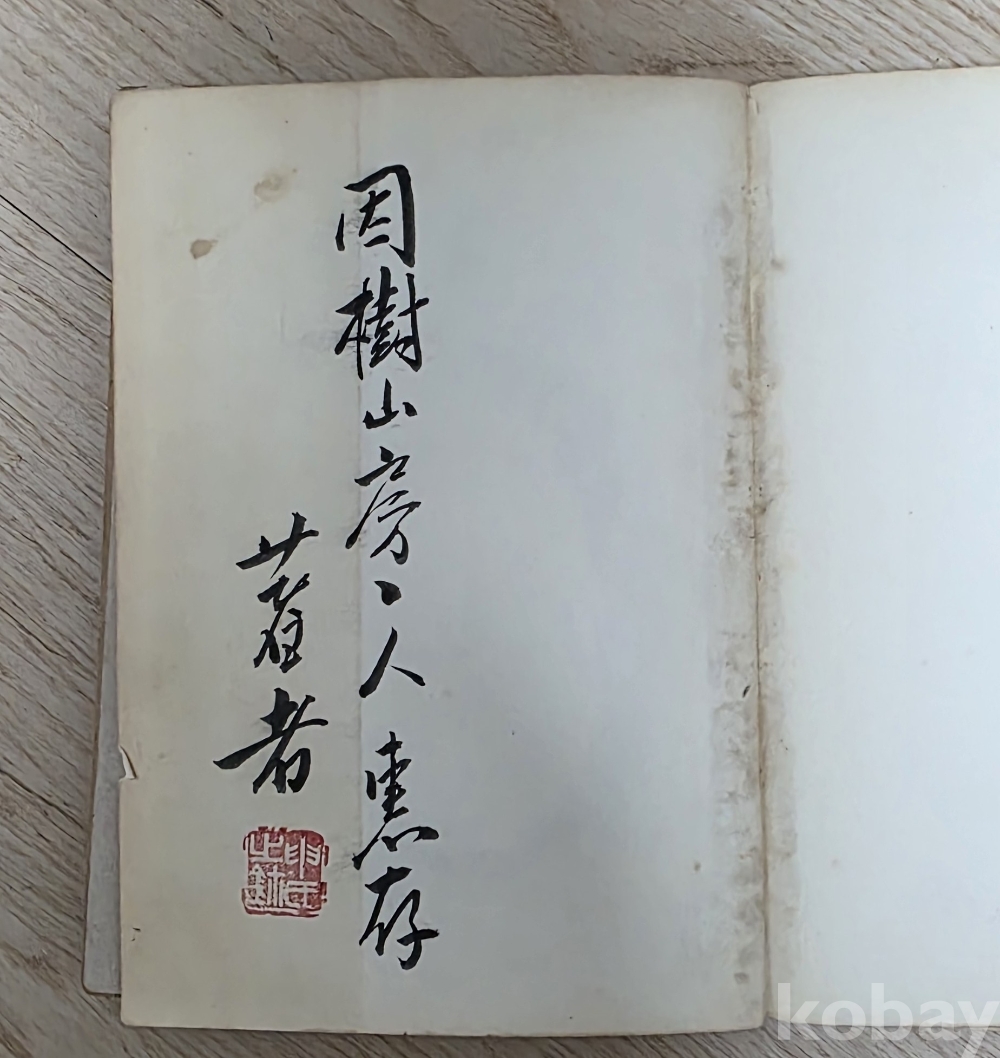 因樹山房〻人 惠存
著者
kobay